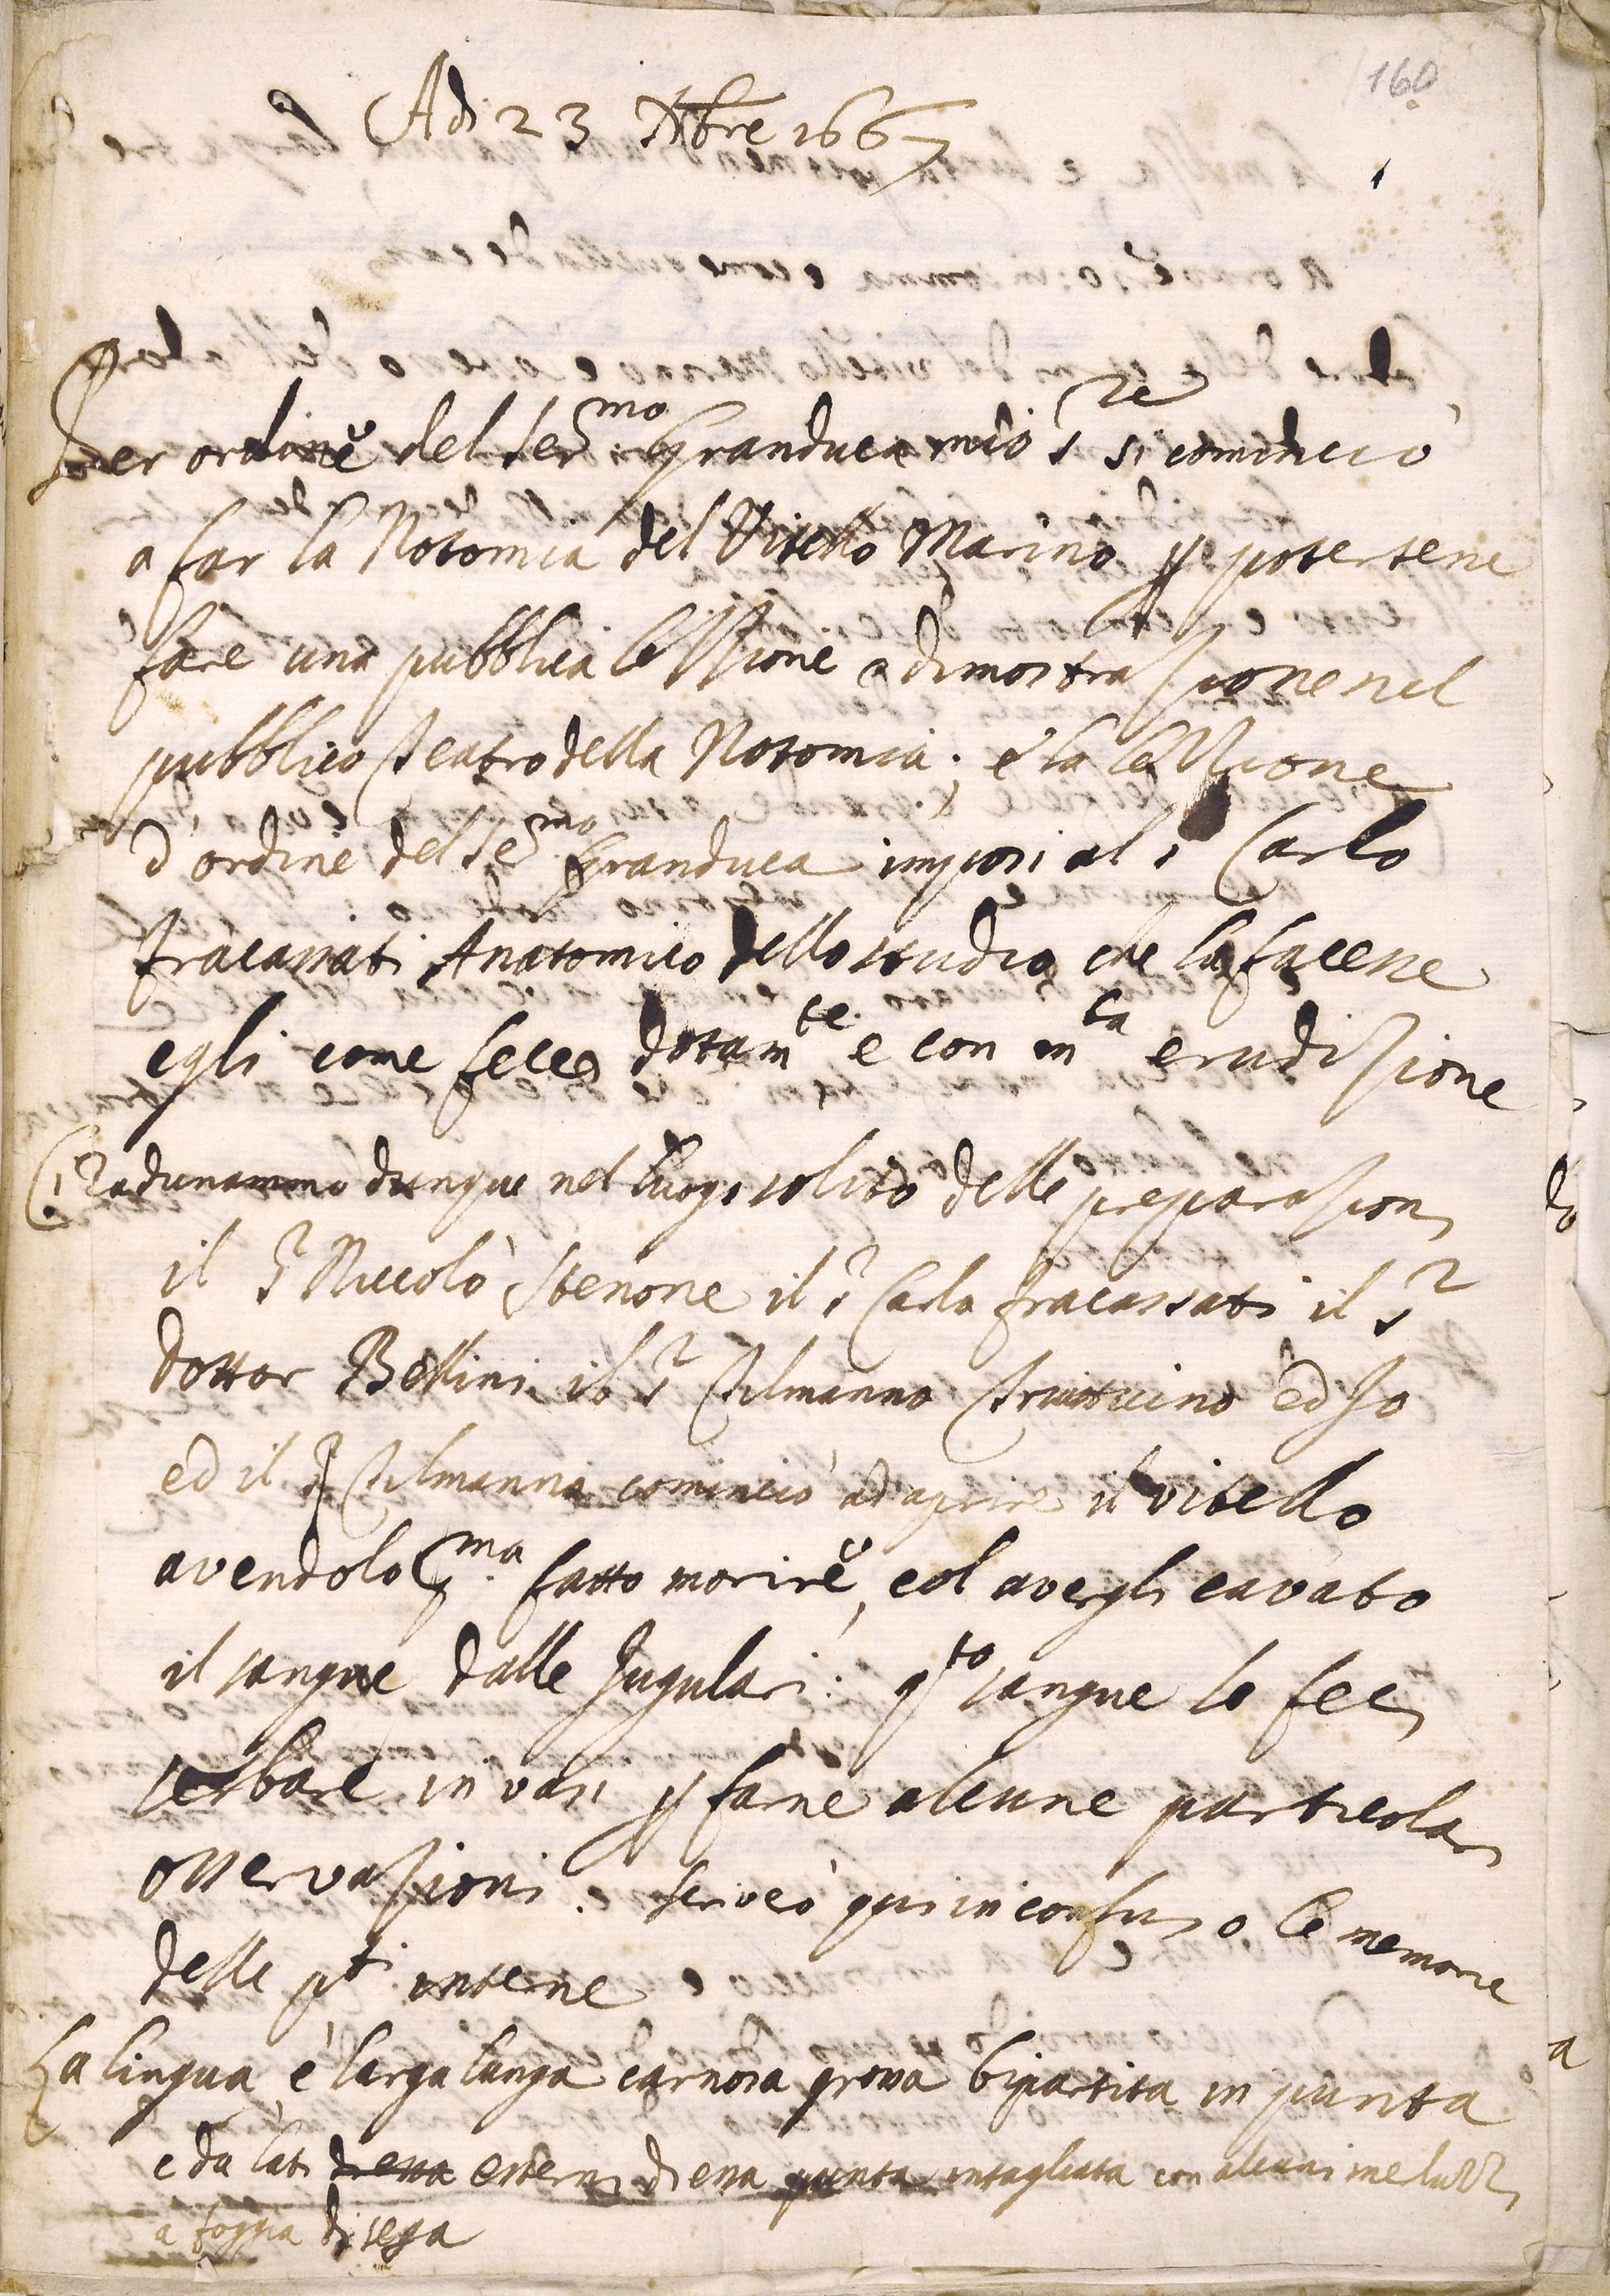 160
Adi 23 Xbre 1667
Per ordine del Ser.mo Granduca mio Sre si cominciò
a far la Notomia del Vitello Marino p potersene
fare una pubblica lezzione e dimostrazione nel
pubblico Teatro della Notomia; e la lezzione
d'ordine del Se.mo Granduca imposi al s Carlo
Fracassati Anatomico dello studio che la facesse
egli come fece dotamte e con mta erudizione
Ci radunammo dunque nel luogo solito delle preparazioni
il Sr Niccolò Stenone il sr Carlo Fracassati il sr
dottor Bellini il sr Tilmanno Trutuino ed Io
ed il sr Tilmanno cominciò ad aprire il vitello
avendolo pma fatto morire, col avergli cavato
il sangue dalle Jugulari: qto sangue lo feci
serbare in vasi p farne alcune particolari
osservazioni. Scriverò qui in confuso le memorie
delle pti interne
La lingua è larga lunga carnosa grossa bipartita in punta
e da lati di essa esterni di essa punta intagliata con alcuni merluzzi
a foggia di sega